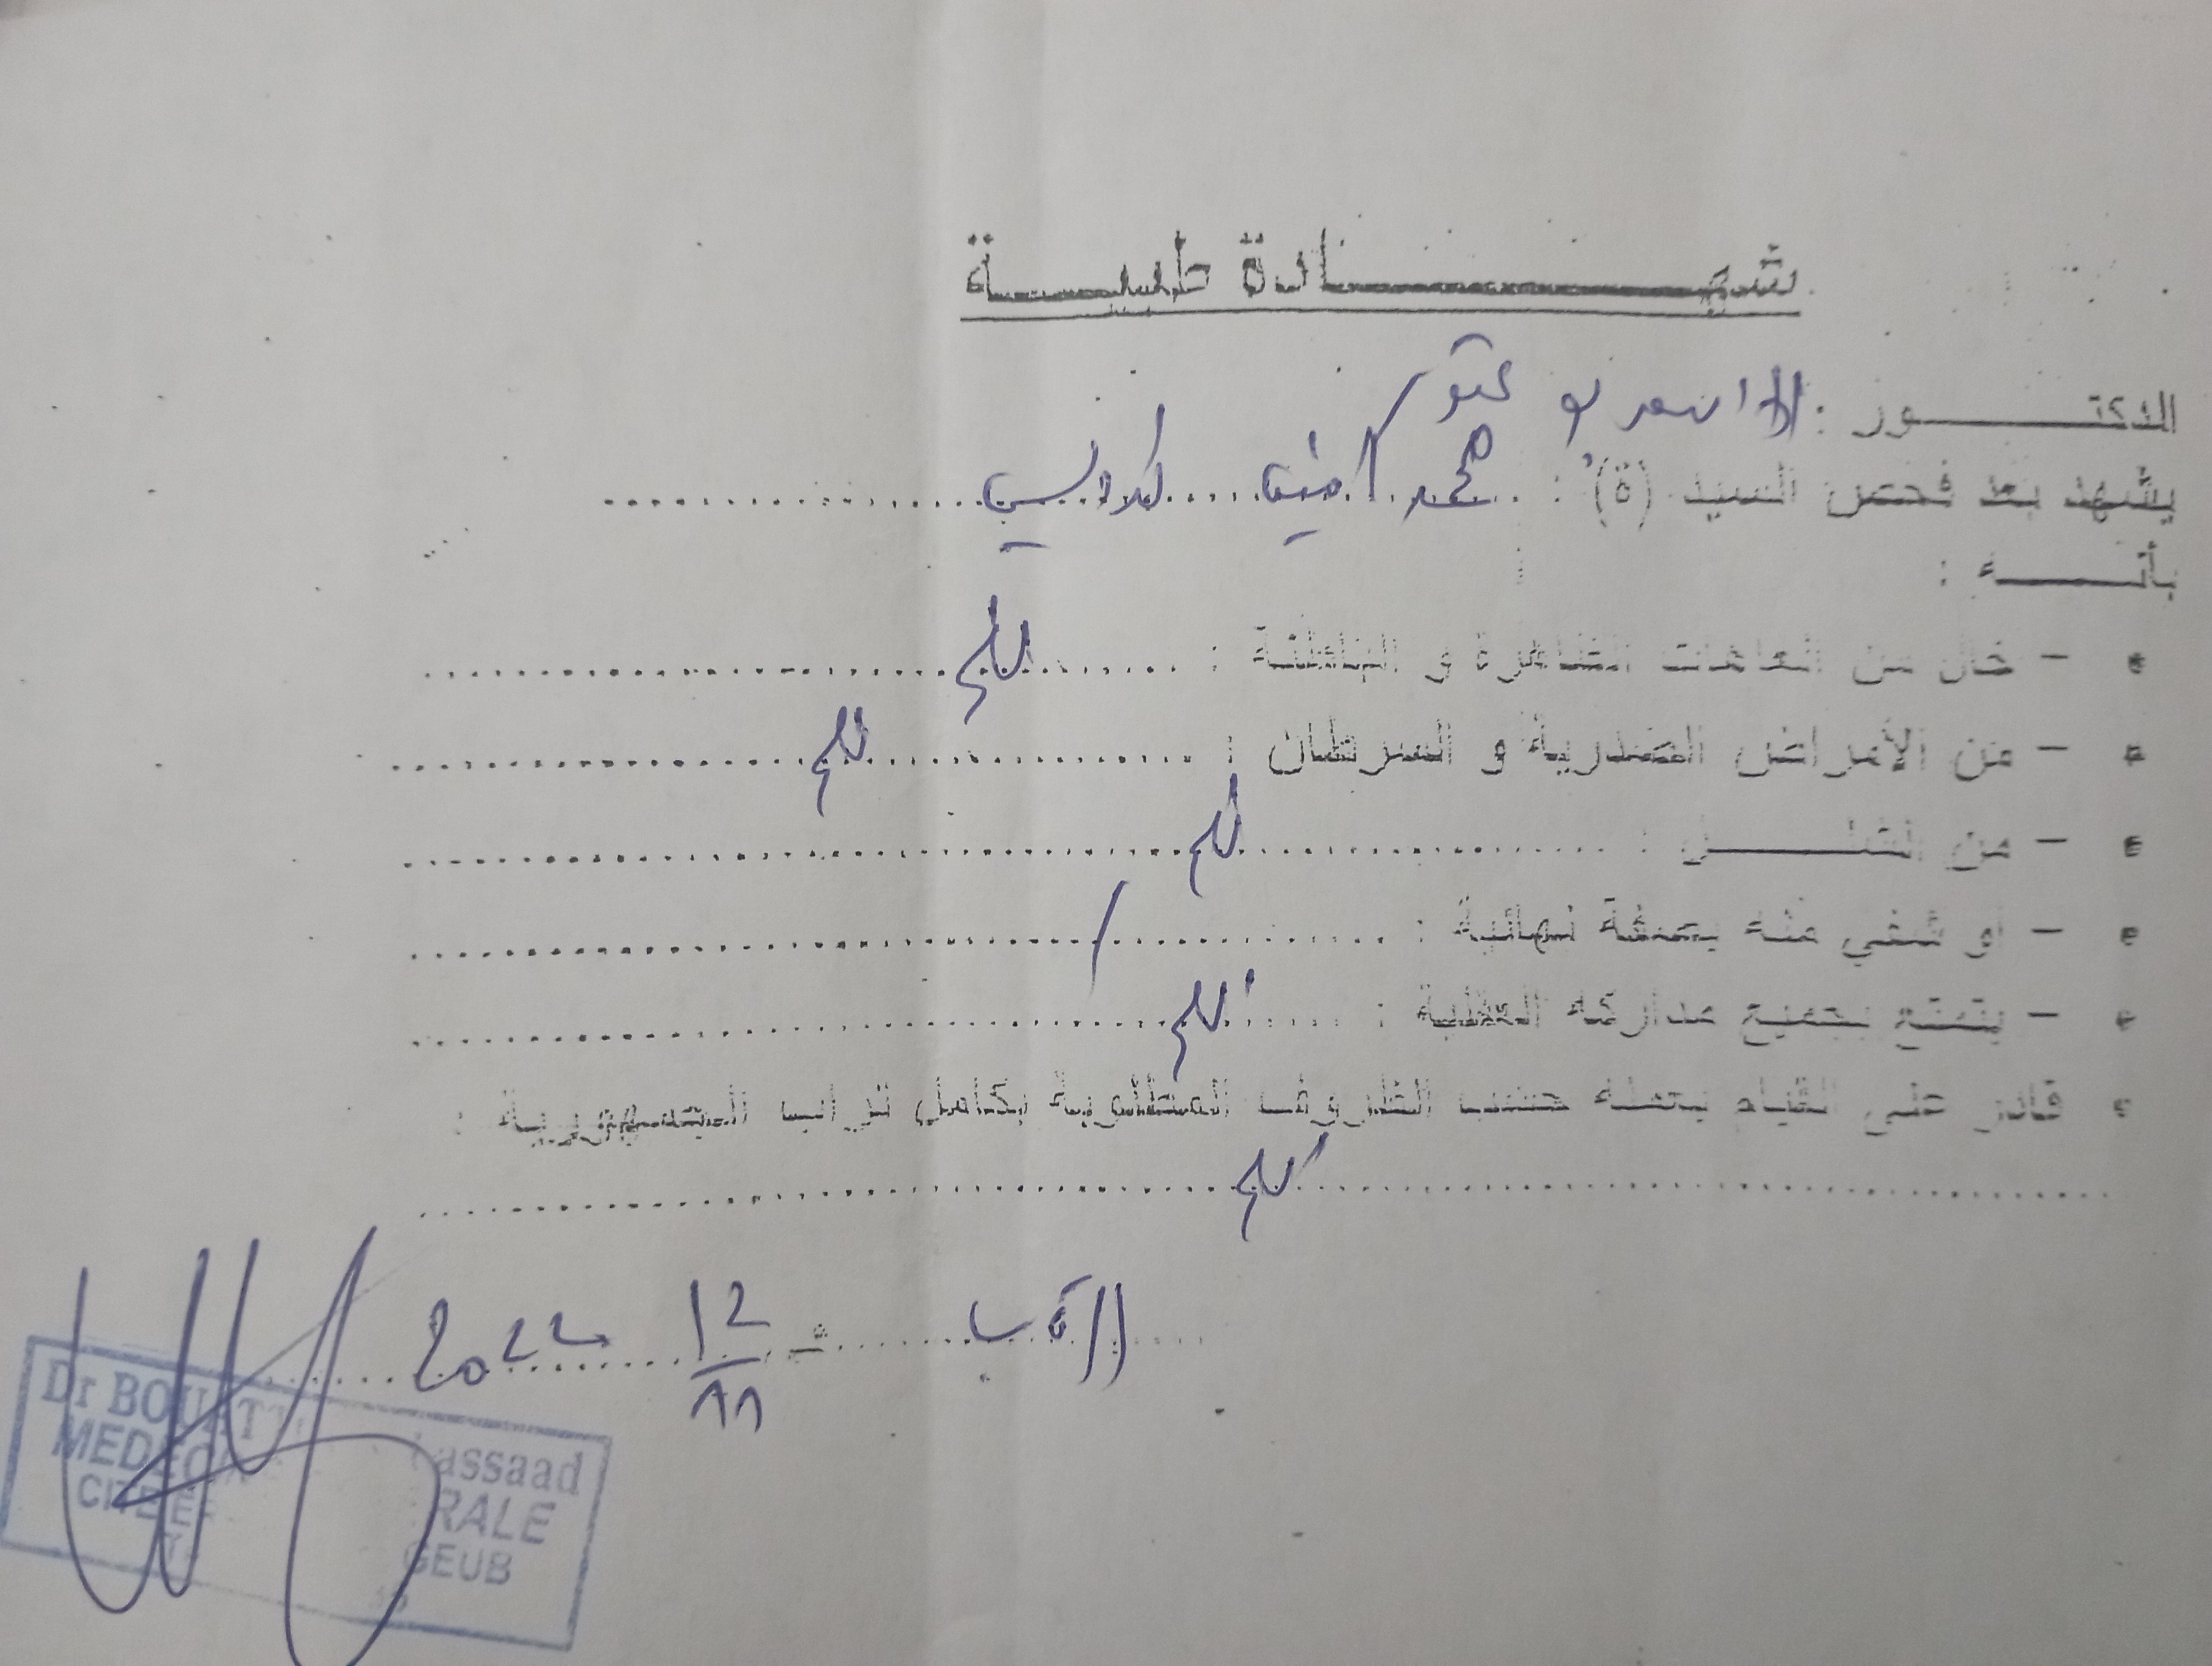 شهـــــــــادة طبيـــــة
الدكتـــــــــور : الاسعد بو عتور
يشهد بعد فحص السيد (ة) : محمد امين
بأنـــــــه :
- خال من العاهات الظاهرة و الباطنة : نعم
- من الأمراض الصدرية و السرطان : نعم
- من الشلــــــــل : نعم
- او شفي منه بصفة نهائية : /
- يتمتع بجميع مداركه العقلية : نعم
قادر على القيام بعمله حسب الظروف المطلوبة بكامل تراب الجمهورية :
نعم
الرقاب في 12/11 2022
Dr lassaad
MEDEC RALE
CITE GEUB